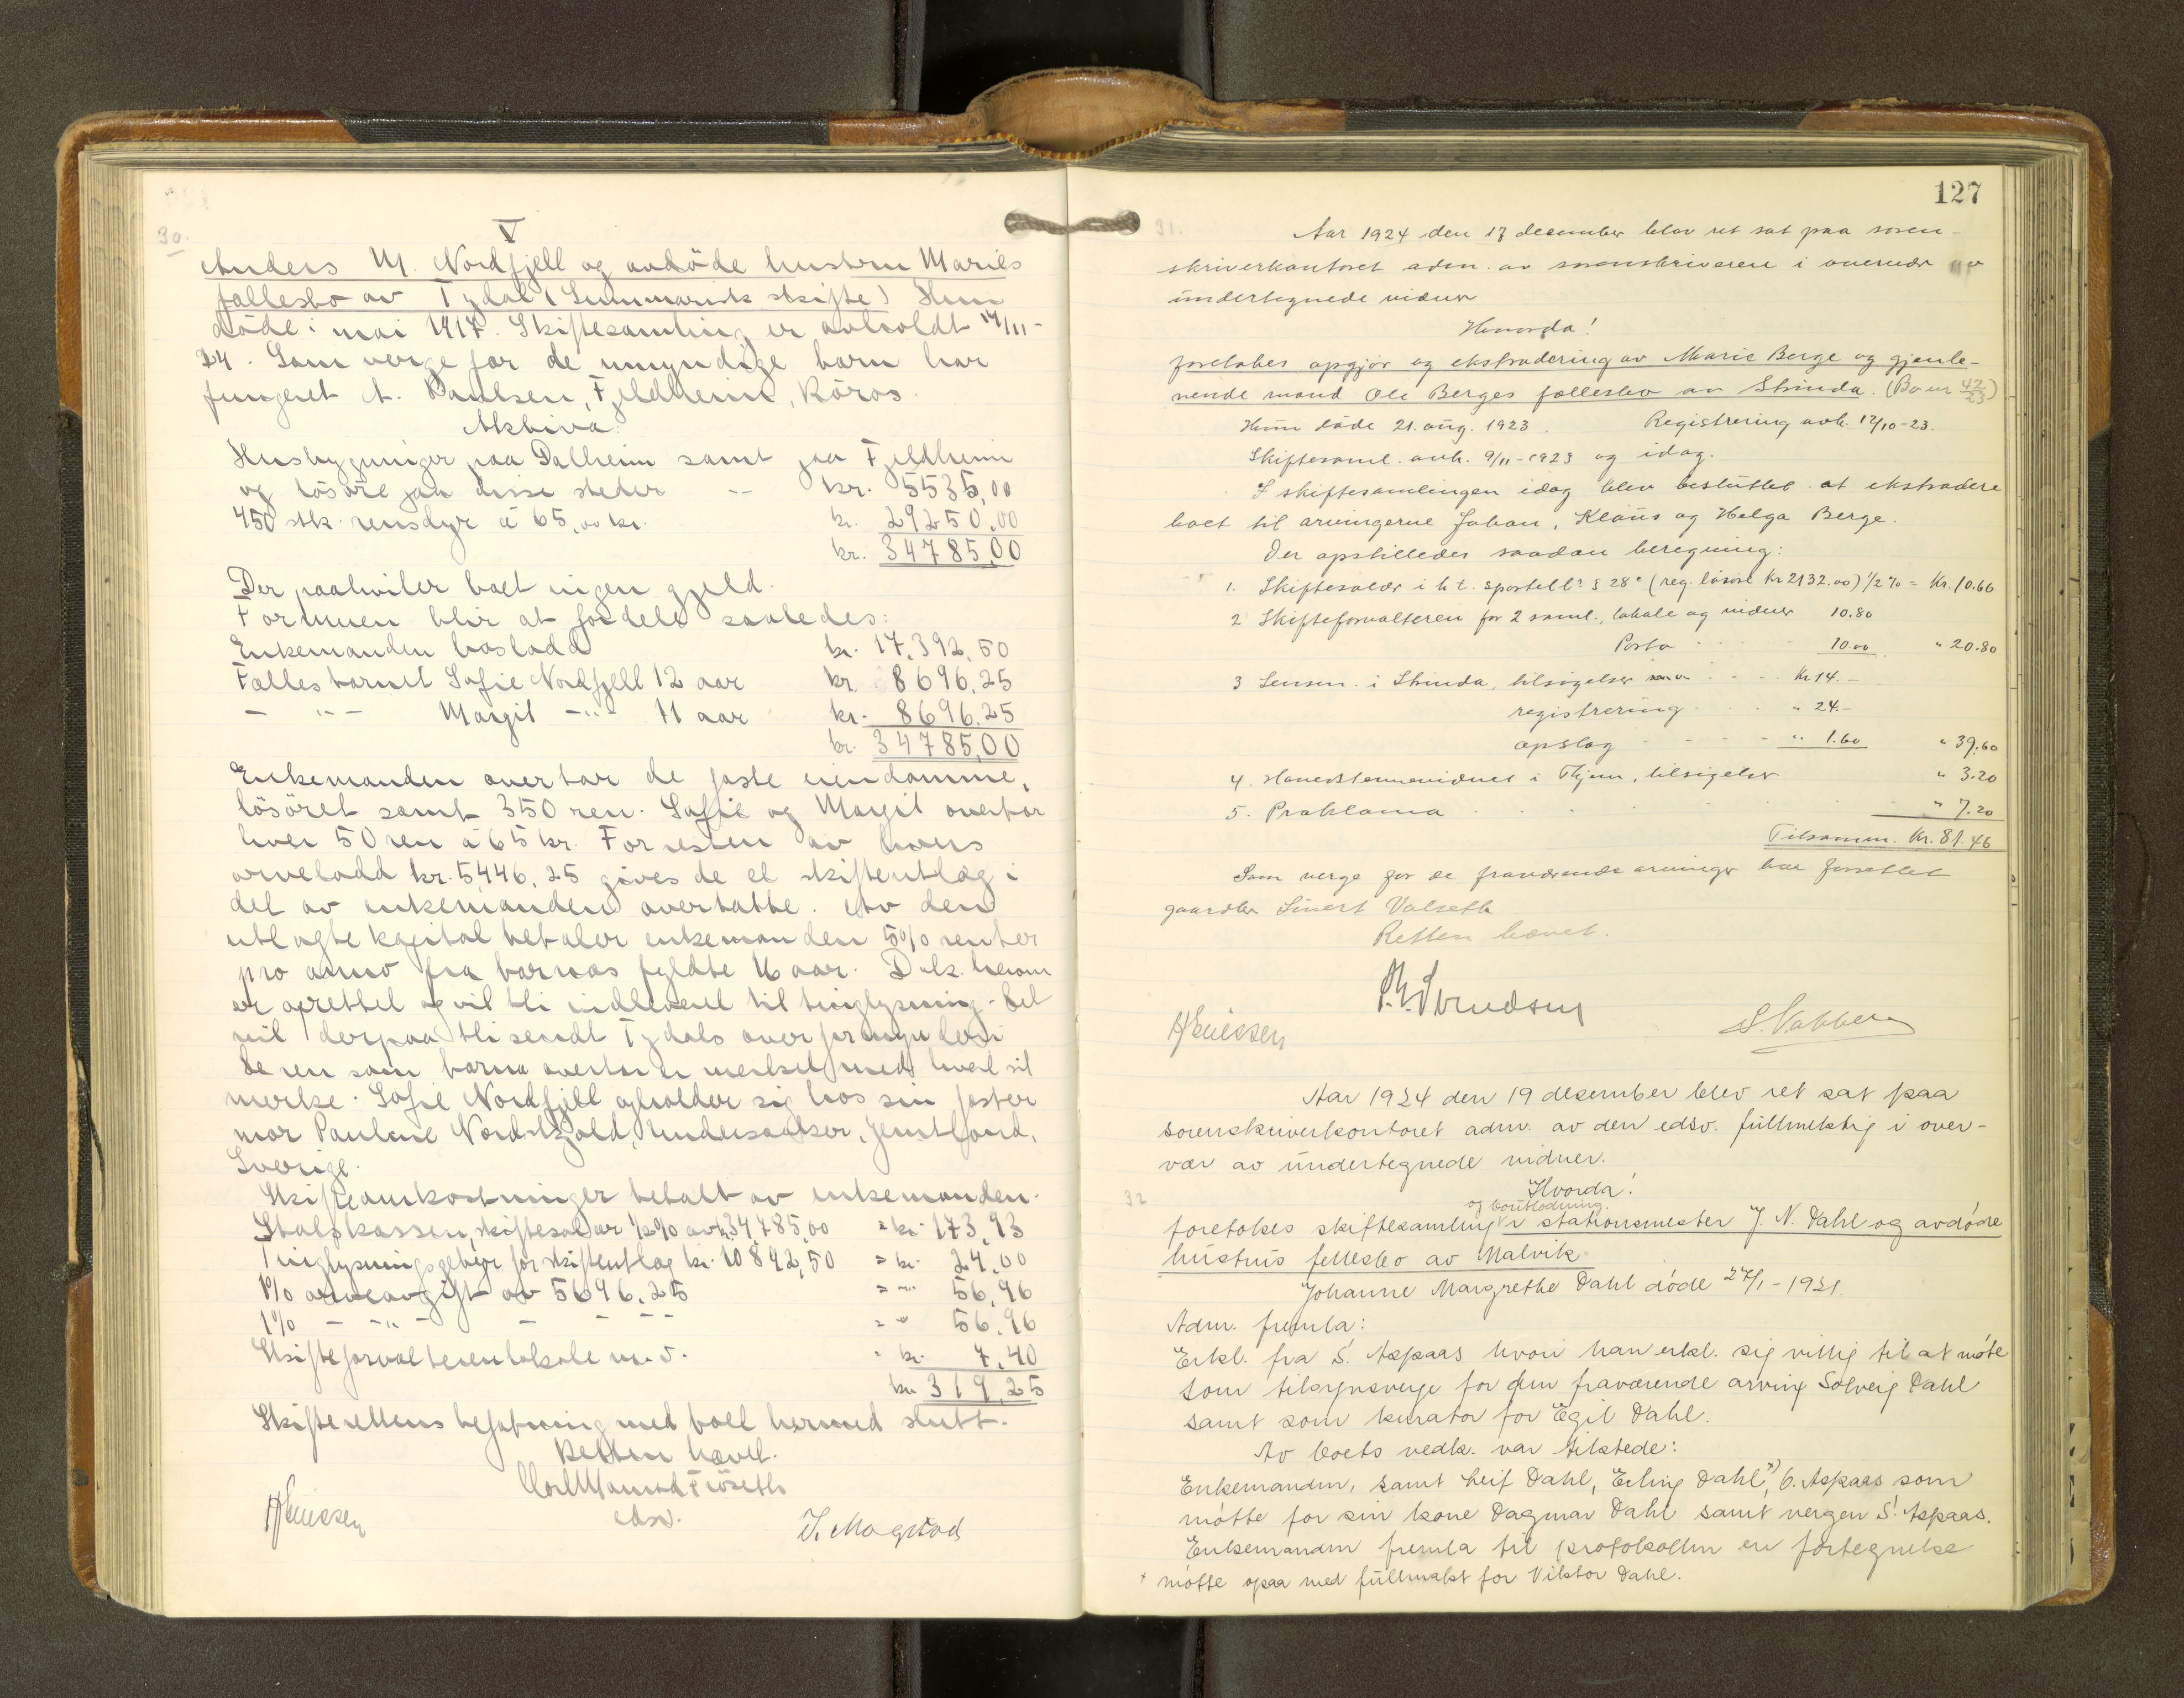 30.
V
Anders M. Nordfjell og avdöde hustru Maries
fællesbo av Tydal (Summarisk skifte) Hun
döde i mai 1917. Skiftesamling er avholdt 14/11-
24. Som verge for de umyndige barn har
fungeret A. Paulsen, Fjeldheim, Röros.
Aktiva:
Husbygninger paa Dalheim samt paa Fjeldheim
og lösöre paa disse steder -- kr. 5535,00
450 stk. rensdyr á 65,00 kr. kr. 29250,00
kr. 34785,00
Der paahviler boet ingen gjeld.
Formuen blir at fordele saaledes:
Enkemanden boslodd kr. 17.392,50
Fællesbarnet Sofie Nordfjell 12 aar kr. 8696,25
- " - Margit - " - 11 aar kr. 8696,25
kr. 34785,00
Enkemanden overtar de faste eiendomme,
lösöret samt 350 ren. Sofie og Margit overtar
hver 50 ren á 65 kr. For resten av hvers
arvelodd kr. 5446,25 gives de et skifteutlæg i
det av enkemanden overtatte. Av den
utlagte kapital betaler enkemanden 5% renter
pro anno fra barnas fyldte 16 aar. Dok. herom
er oprettet og vil bli indlevert til tinglysning - det
vil derpaa bli sendt Tydals overformynderi
De ren som barna overtar er merket med hvert sit
merke. Sofie Nordfjell opholder sig hos sin faster
mor Paulene Nordfjeld, Undersaaker, Jemtland,
Sverige.
Skifteomkostninger betalt av enkemanden.
Statskassen, skiftesalær 1/2% av kr. 34,785,00 = kr. 173,93
Tinglysningsgebyr for skifteutlæg kr. 10892,50 = kr. 24,00
1% arveavgift av 5696,25 = - " - 56,96
1% - - " - - - - - = " 56,96
Skifteforvalteren lokale m. v. - kr. 7,40
kr. 319,25
Skifterettens befatning med boet hermed slutt.
Retten hævet.
edsv.
J. Mogstad
127
31.
Aar 1924 den 17 desember blev ret sat paa soren-
skriverkontoret adm. av sorenskriveren i overvær av
undertegnede vidner
Hvorda!
foretokes opgjør og ekstradering av Marie Berge og gjenle-
vende mand Ole Berges fællesbo av Strinda. (Bo nr 42/23)
Hun døde 21. aug. 1923. Registrering avh. 12/10-23.
Skiftesaml. avh. 9/11-1923 og idag.
I skiftesamlingen idag blev besluttet at ekstradere
boet til arvingerne Johan, Klaus og Helga Berge.
Der opstilledes saadan beregning:
1. Skiftesalær i h. t. sportell. § 28 (reg. løsøre kr 2132.00) 1/2% = Kr. 10.66
2 Skifteforvalteren for 2 saml., lokale og vidner 10.80
Porto 10.00 " 20.80
3 Lensm. i Strinda, tilsigelser Kr 14.-
registrering " 24.-
opslag " 1.60 " 39.60
4. Hovedstevnevidnet i , tilsigelser " 3.20
5. Proklama " 7.20
Tilsammn. Kr. 81.46
Som verge for de fraværende arvinger har forrettet
gaardbr. Sivert Valseth
Retten hævet.
Aar 1924 den 19 desember blev ret sat paa
sorenskriverkontoret adm. av den edsv. fullmektig i over-
vær av undertegnede vidner.
Hvorda!
32
og boutlodning.
foretokes skiftesamling i stationsmester J. N. Dahl og avdøde
hustrus fellesbo av Malvik
Johanne Margrethe Dahl døde 27/1-1921.
Adm. fremla:
Erkl. fra S. Aspaas hvori han erkl. sig villig til at møte
som tilsynsverge for den fraværende arving Solveig Dahl
samt som kurator for Egil Dahl.
Av boets vedk. var tilstede:
Enkemanden, samt Leif Dahl, Erling Dahl x), O. Aspaas som
møtte for sin kone Dagmar Dahl samt vergen S. Aspaas.
Enkemanden fremla til protokollen en fortegnelse
x møtte ogsaa med fullmakt for Viktor Dahl.